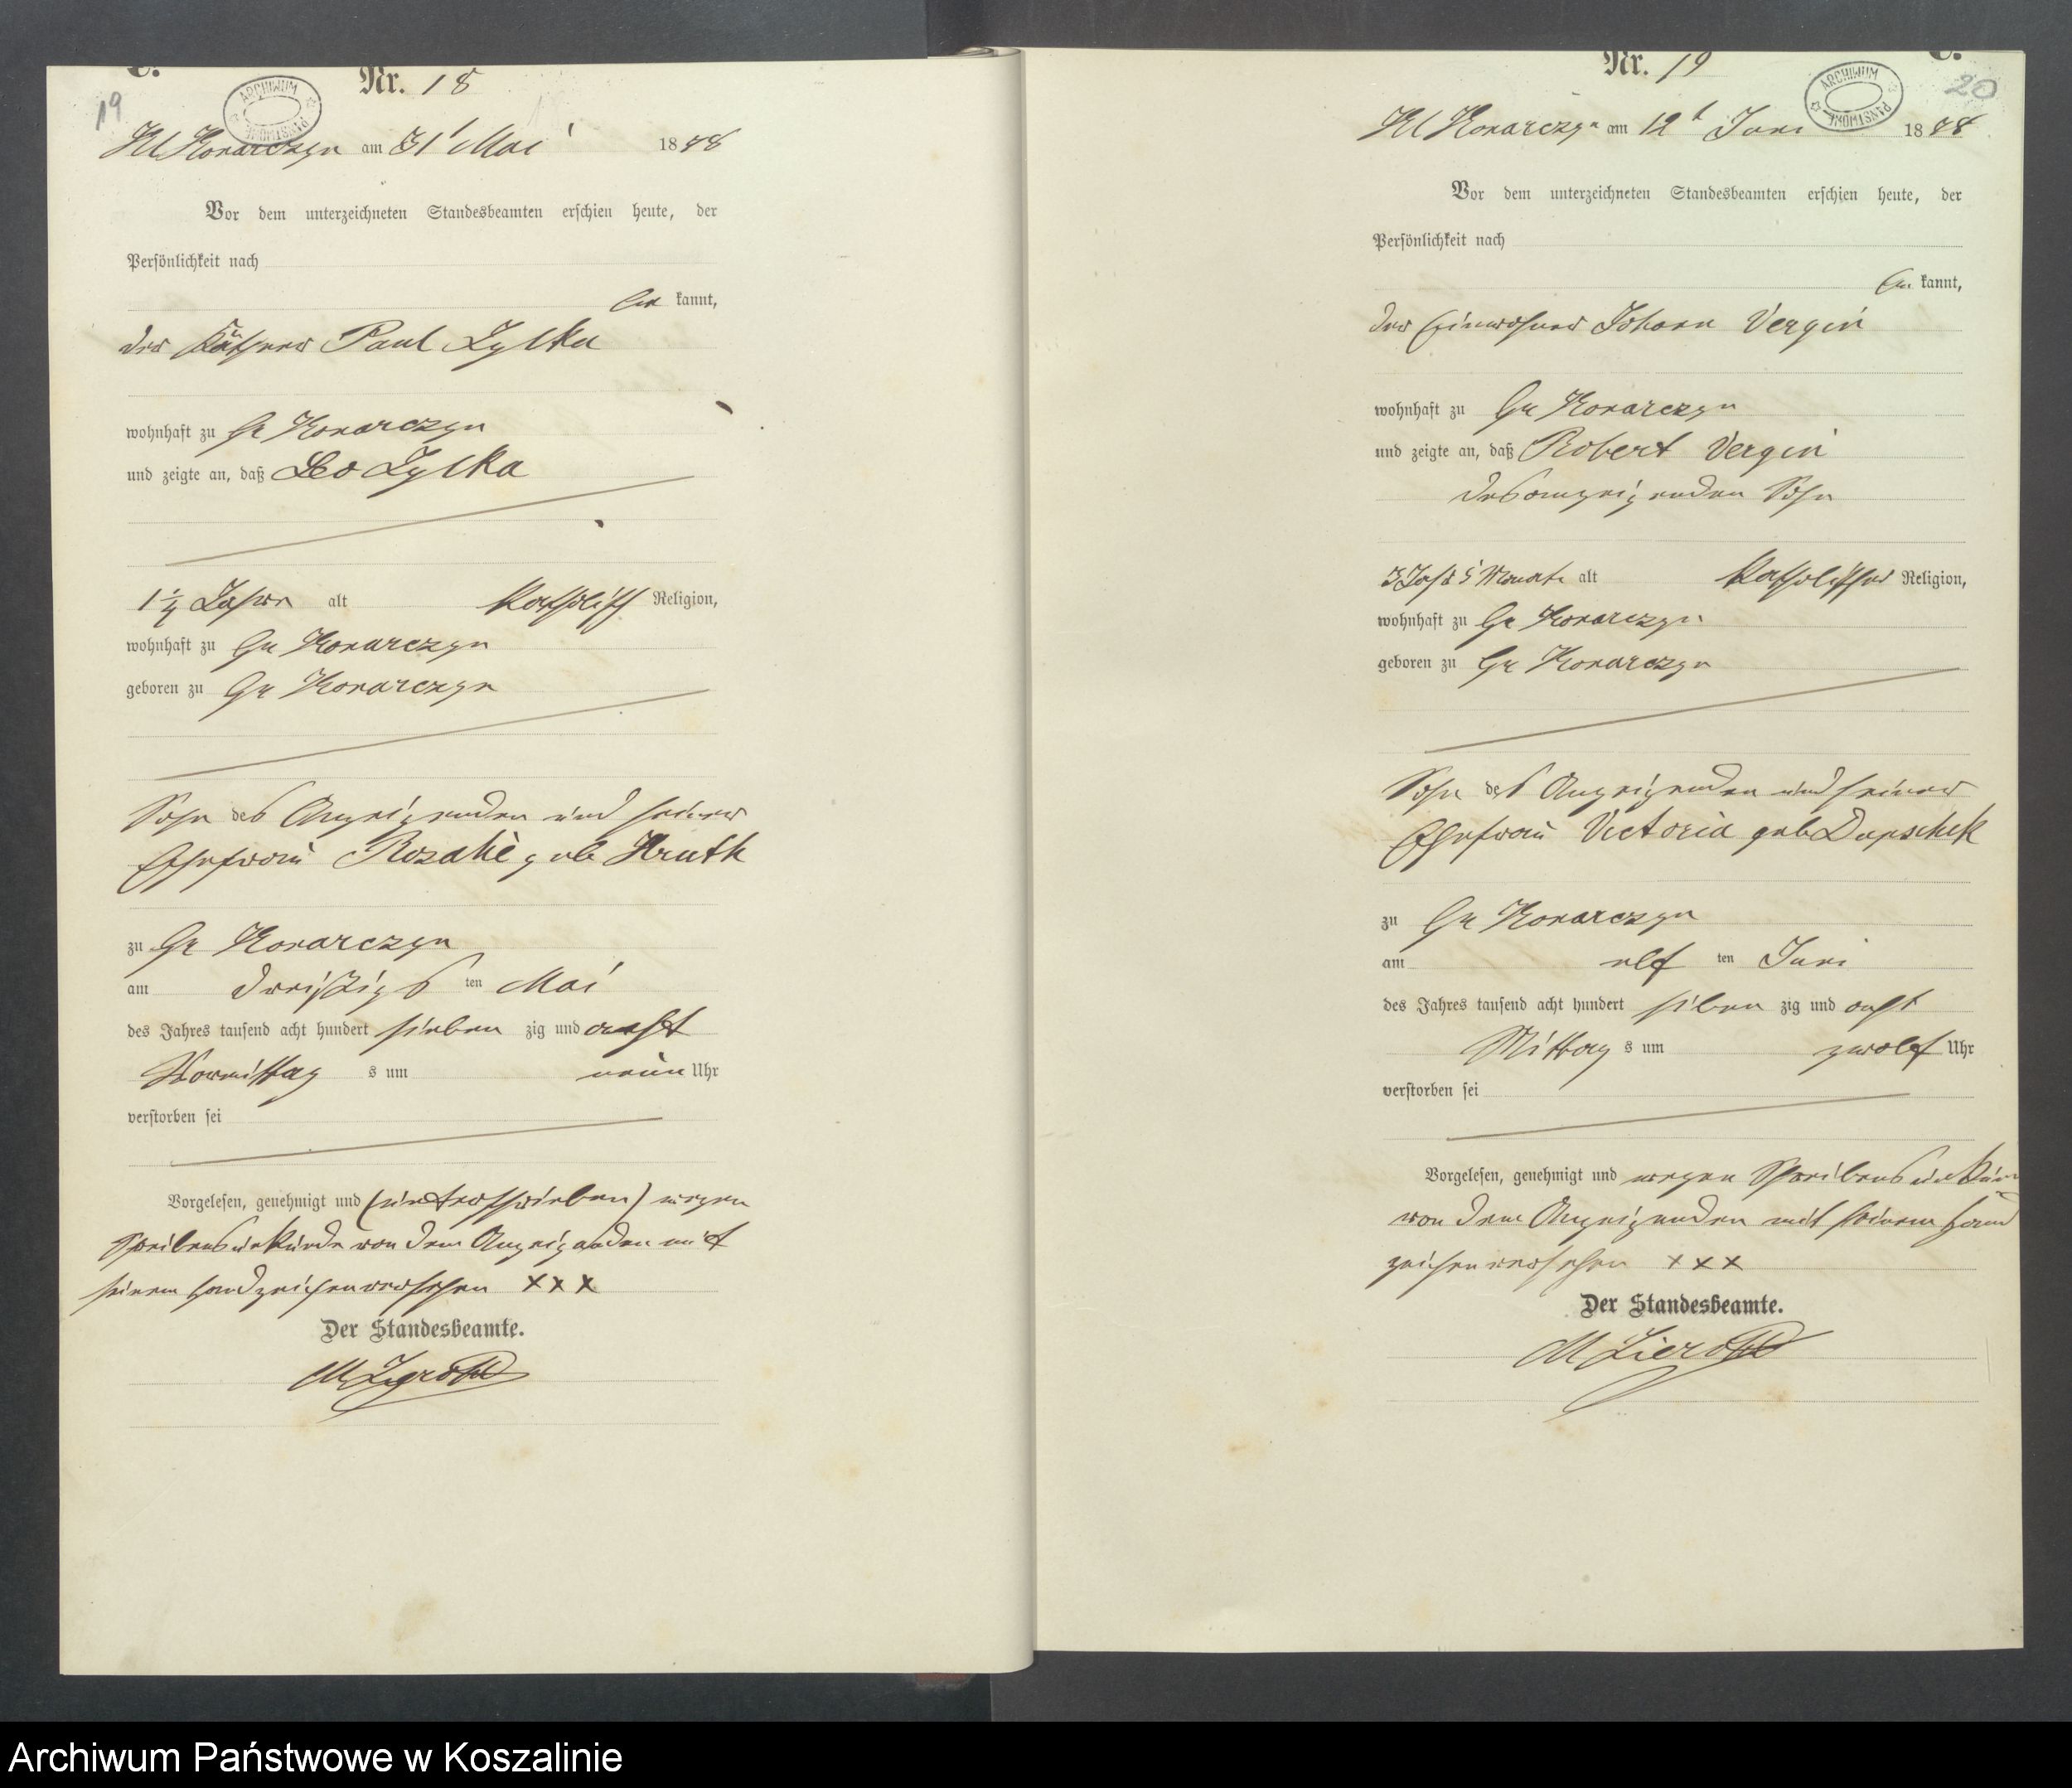 C.
Nr. 18
19
ARCHIWUM PAŃSTWOWE
Kl Konarczyn am 31t Mai 1878
Vor dem unterzeichneten Standesbeamten erschien heute, der
Persönlichkeit nach
be kannt,
der Käthner Paul Zylka
wohnhaft zu Gr Konarczyn
und zeigte an, daß Leo Zylka
1 1/4 Jahre alt katholisch Religion,
wohnhaft zu Gr Konarczyn
geboren zu Gr Konarczyn
Sohn des Anzeigenden und seiner
Ehefrau Rosalie geb Hruth
zu Gr Konarczyn
am dreißigs ten Mai
des Jahres tausend acht hundert sieben zig und acht
Vormittag s um neun Uhr
verstorben sei
Vorgelesen, genehmigt und (unterschrieben) wegen
Schreibensunkunde von dem Anzeigenden mit
seinem Handzeichen versehen XXX
Der Standesbeamte.
C.
Nr. 19
20
ARCHIWUM PAŃSTWOWE
Kl Konarczyn am 12t Juni 1878
Vor dem unterzeichneten Standesbeamten erschien heute, der
Persönlichkeit nach
be kannt,
der Einwohner Johann Vergin
wohnhaft zu Gr Konarczyn
und zeigte an, daß Robert Vergin
des anzeigenden Sohn
3 Jahr 5 Monate alt katholischer Religion,
wohnhaft zu Gr Konarczyn
geboren zu Gr Konarczyn
Sohn des Anzeigenden und seiner
Ehefrau Victoria geb Dapschek
zu Gr Konarczyn
am elf ten Juni
des Jahres tausend acht hundert sieben zig und acht
Mittag s um zwölf Uhr
verstorben sei
Vorgelesen, genehmigt und wegen Schreibensunkun
von dem Anzeigenden mit seinem Hand
zeichen versehen XXX
Der Standesbeamte.
M Zieroth
Archiwum Państwowe w Koszalinie